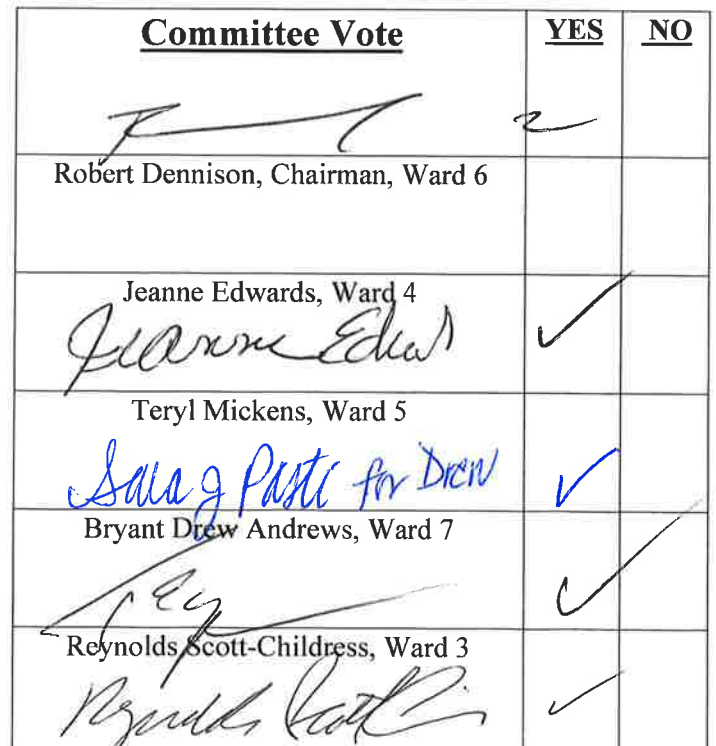 Committee Vote YES NO
Robert Dennison, Chairman, Ward 6
Jeanne Edwards, Ward 4
Jeanne Edwards
Teryl Mickens, Ward 5
for Drew
Bryant Drew Andrews, Ward 7
Reynolds Scott-Childress, Ward 3
Reynolds Scott